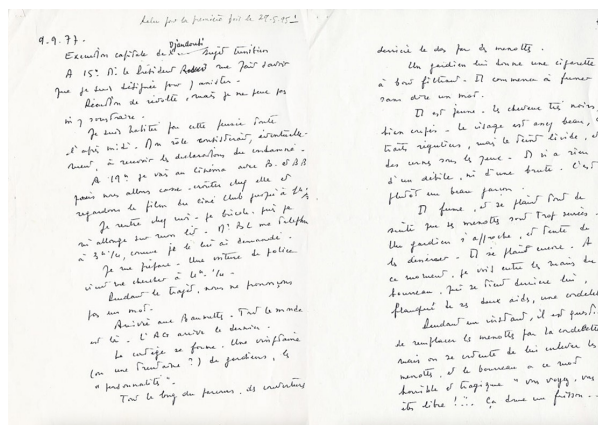 Relu pour la première fois le 29.5.85 !
9.9.77.
Djandoubi
Exécution capitale de sujet tunisien
A 15h M. le Président me fait savoir
que je suis désignée pour y assister.
Réaction de révolte, mais je ne peux pas
m'y soustraire.
Je suis habitée par cette pensée toute
l'après midi. Mon rôle consisterait, éventuelle-
ment, à recevoir les déclarations du condamné.
A 19h je vais au cinéma avec B. et B.B
puis nous allons casse-croûter chez elle et
regardons le film du ciné club jusqu'à 1h.
Je rentre chez moi. je bricole, puis je
m'allonge sur mon lit. M. B.L me téléphone
à 3h 1/4, comme je le lui ai demandé.
Je me prépare. Une voiture de police
vient me chercher à 4h 1/4.
Pendant le trajet, nous ne prononçons
pas un mot.
Arrivée aux Baumettes. Tout le monde
est là. L'AG arrive le dernier.
Le cortège se forme. Une vingtaine
(ou une trentaine ?) de gardiens, les
"personnalités".
Tout le long du parcours, des couvertures
derrière le dos par des menottes.
Un gardien lui donne une cigarette
à bout filtrant. Il commence à fumer
sans dire un mot.
Il est jeune. Les cheveux très noirs,
bien coiffés. Le visage est assez beau,
traits réguliers, mais le teint livide, et
des cernes sous les yeux. Il n'a rien
d'un débile, ni d'une brute. C'est
plutôt un beau garçon.
Il fume, et se plaint tout de
suite que ses menottes sont trop serrées.
Un gardien s'approche, et tente de
les desserrer. Il se plaint encore. A
ce moment, je vois entre les mains du
bourreau, qui se tient derrière lui,
flanqué de ses deux aides, une cordelette
Pendant un instant, il est question
de remplacer les menottes par la cordelette
mais on se contente de lui enlever les
menottes, et le bourreau a ce mot
horrible et tragique "vous voyez, vous
êtes libre !... Ça donne un frisson...